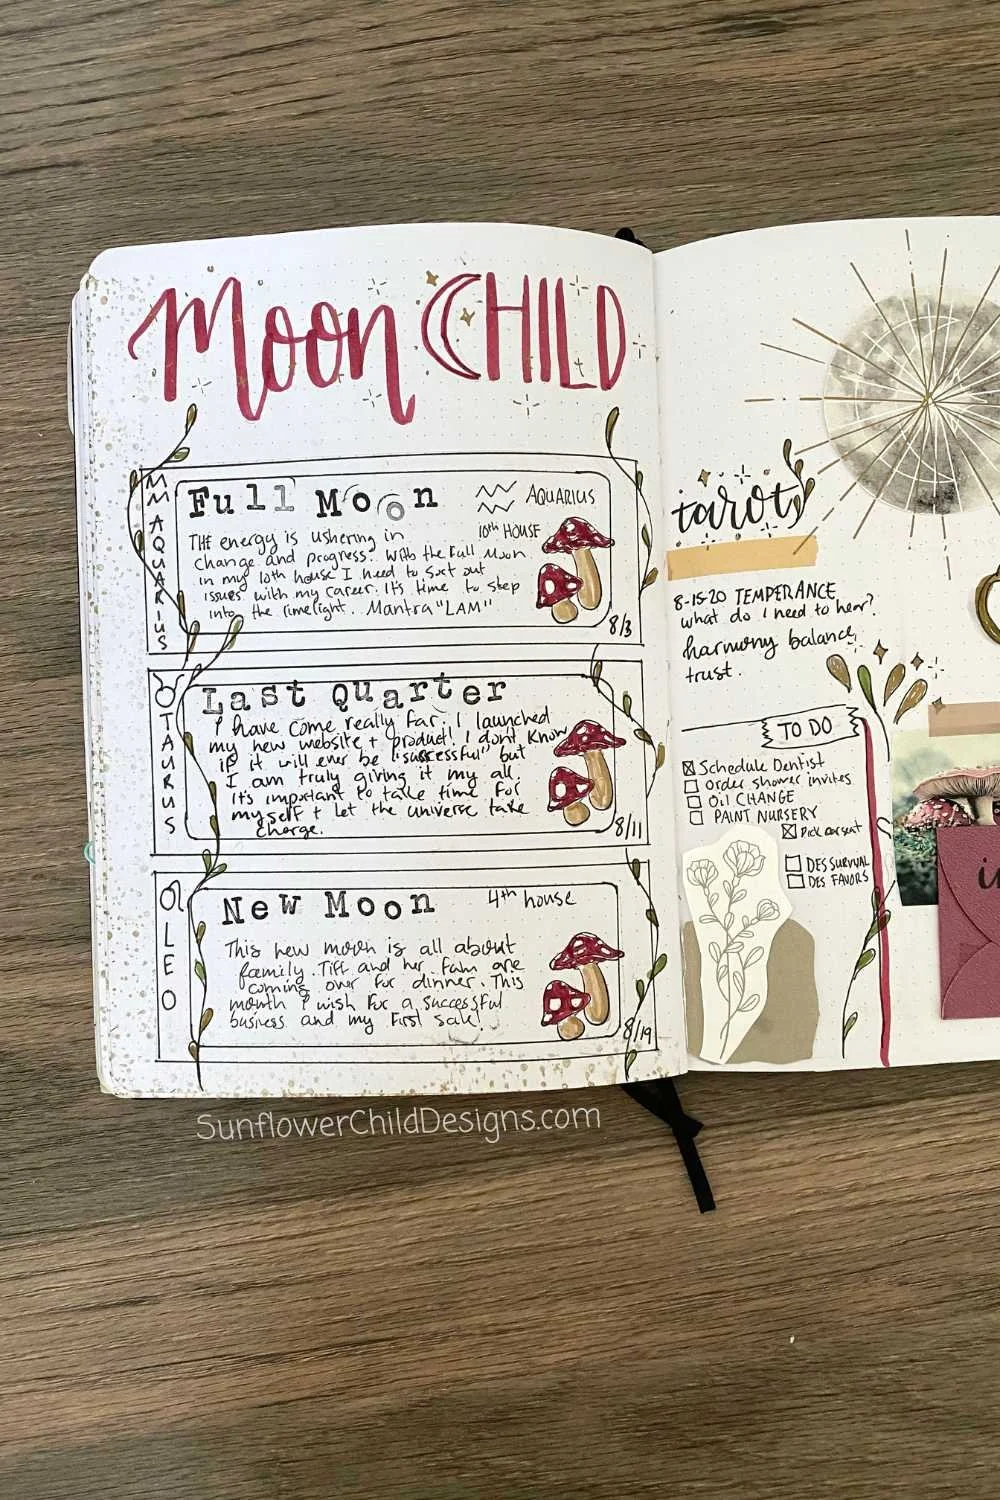 Moon CHILD
AQUARIUS
Full Moon
AQUARIUS
10th HOUSE
THE energy is ushering in
change and progress. With the Full Moon
in my 10th house I need to sort out
issues with my career. It's time to step
into the limelight. Mantra "LAM"
8/3
TAURUS
Last Quarter
I have come really far. I launched
my new website + product! I don't know
if it will ever be "successful" but
I am truly giving it my all.
It's important to take time for
myself + let the universe take
charge.
8/11
LEO
New Moon
4th house
This new moon is all about
family. Tiff and her fam are
coming over for dinner. This
month I wish for a successful
business and my first sale!
8/19
tarot
8-15-20 TEMPERANCE
what do I need to hear?
harmony balance,
trust.
TO DO
Schedule Dentist
Order shower invites
Oil CHANGE
PAINT NURSERY
Pick car seat
DES SURVIVAL
DES FAVORS
SunflowerChildDesigns.com